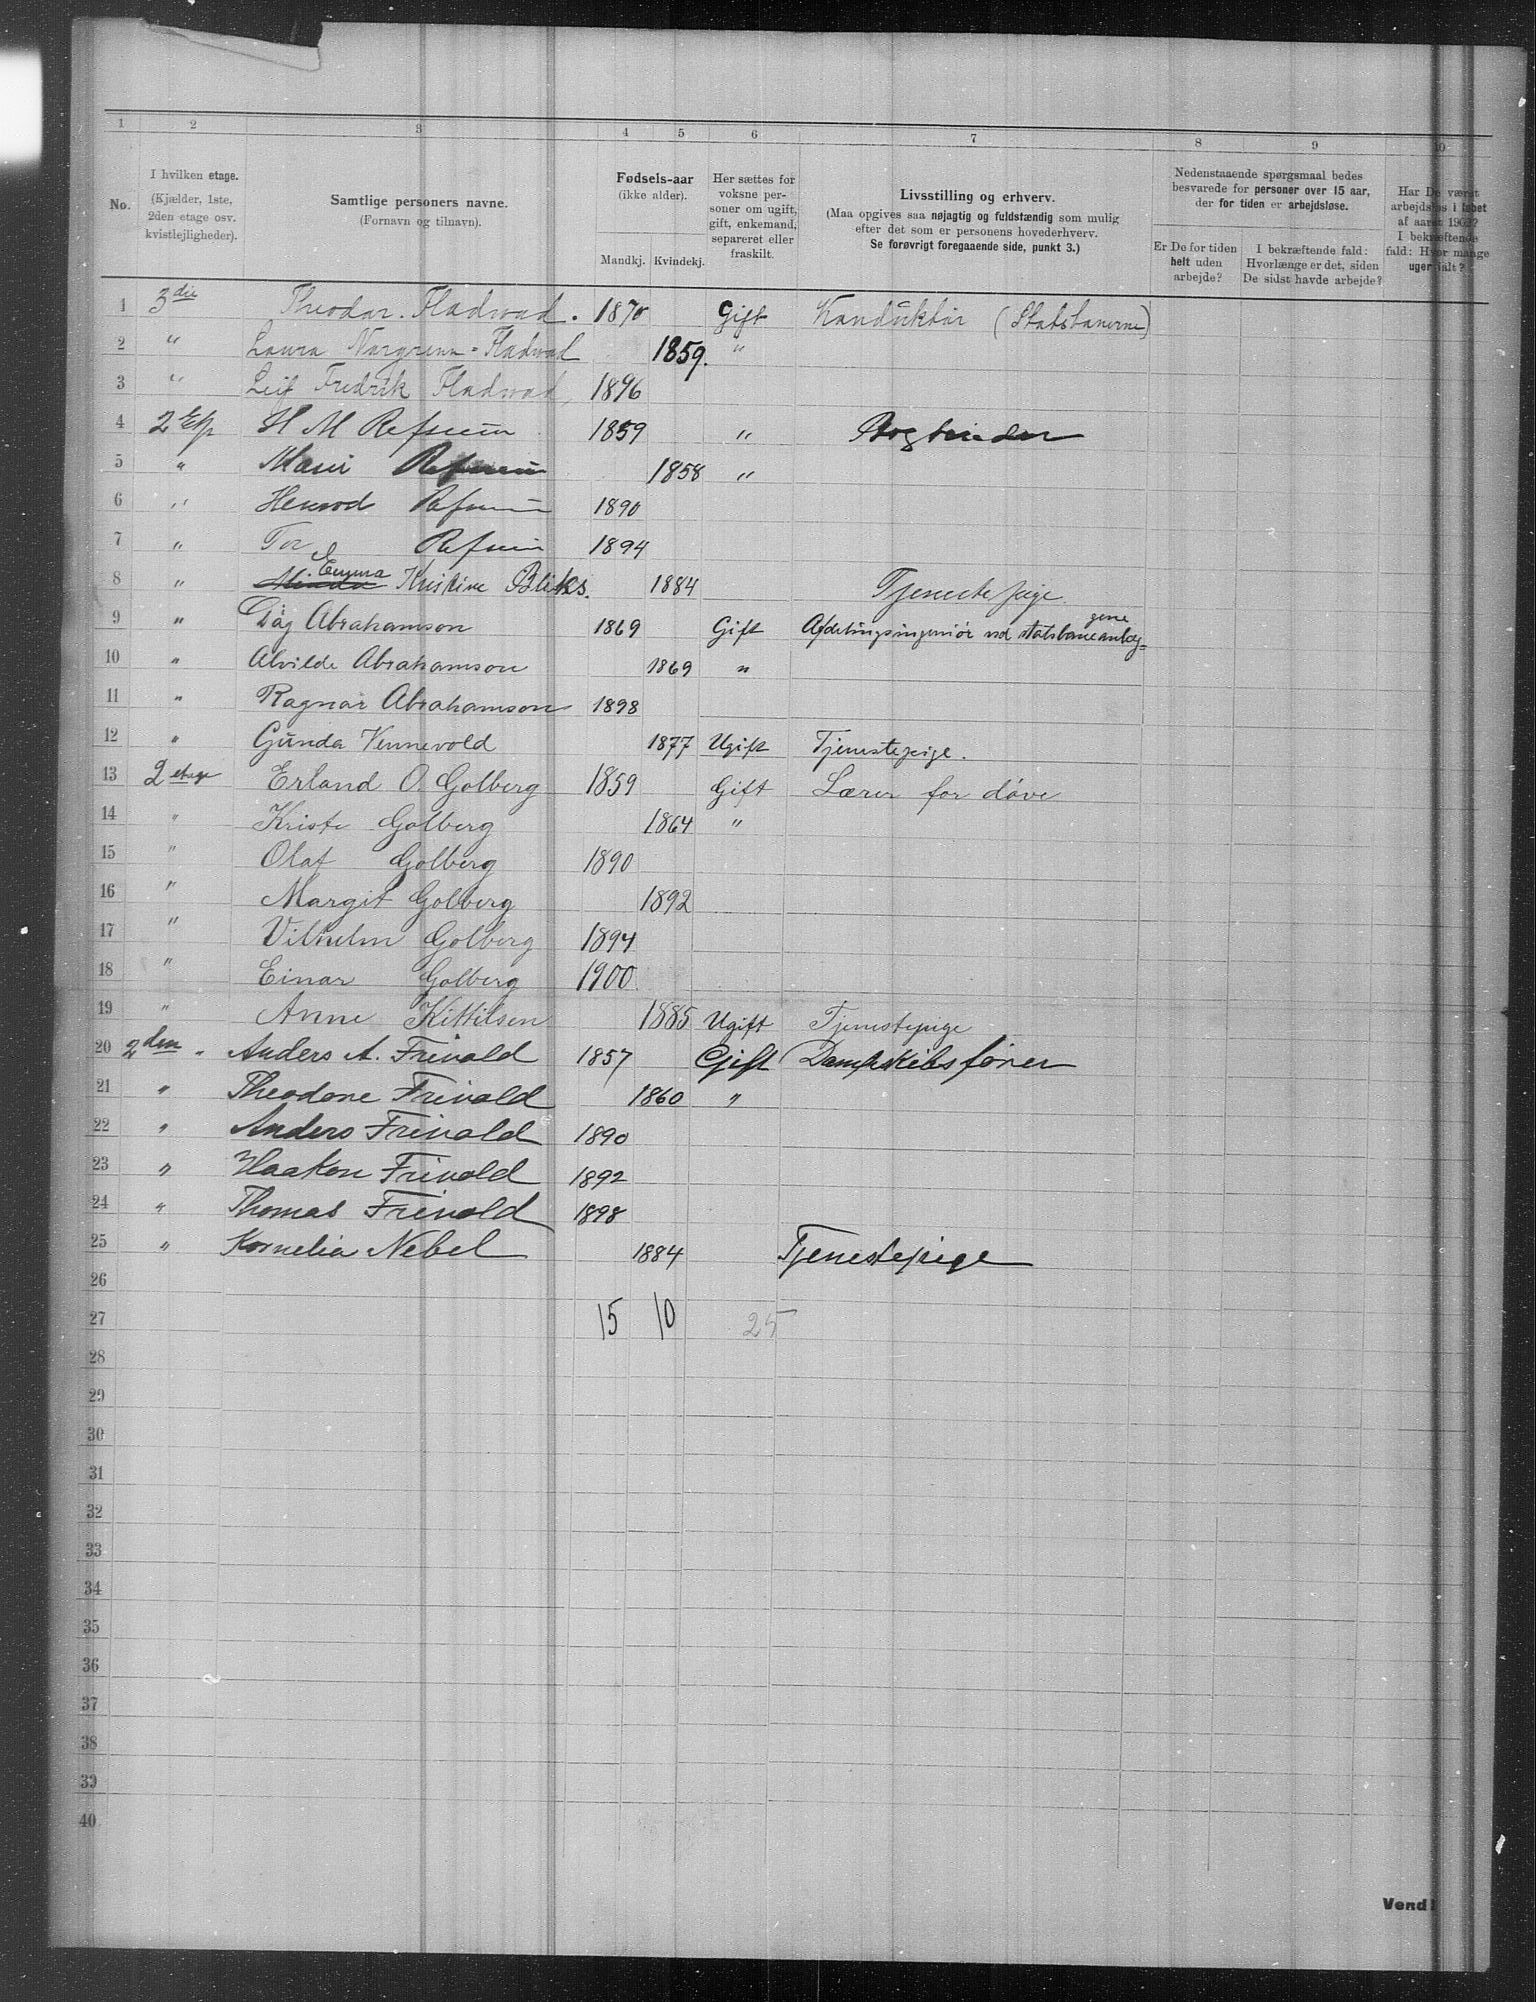 1 2 3 4 5 6 7 8 9 10
No. I hvilken etage. (Kjælder, 1ste, 2den etage osv. kvistlejligheder). Samtlige personers navne. (Fornavn og tilnavn). Fødsels-aar (ikke alder). Mandkj. Kvindekj. Her sættes for voksne personer om ugift, gift, enkemand, separeret eller fraskilt. Livsstilling og erhverv. (Maa opgives saa nøjagtig og fuldstændig som mulig efter det som er personens hovederhverv. Se forøvrigt foregaaende side, punkt 3.) Nedenstaaende spørgsmaal bedes besvarede for personer over 15 aar, der for tiden er arbejdsløse. Er De for tiden helt uden arbejde? I bekræftende fald: Hvorlænge er det, siden De sidst havde arbejde? Har De været arbejdsløs i løbet af aaret 1902? I bekræftende fald: Hvor mange uger ialt?
1 3die Theodor. Fladvad. 1870 Gift Konduktør (Statsbanerne)
2 " Laura Norgrenn-Fladvad 1859. "
3 " Leif Fredrik Fladvad 1896
4 2 Etg H M Refsum 1859 " Bogbinder
5 " Marie Refsum 1858 "
6 " Refsum 1890
7 " Tor Refsum 1894
8 " Emma Kristine Bliks. 1884 Tjenestepige
9 " Dag Abrahamson 1869 Gift Afdelingsingeniør ved statsbaneanlæg=gene
10 " Alvilde Abrahamson 1869 "
11 " Ragnar Abrahamson 1898
12 " Gunda Vennevold 1877 Ugift Tjenestepige.
13 2 etage Erland O. Golberg 1859 Gift Lærer for døve
14 " Kriste Golberg 1864 "
15 " Olaf Golberg 1890
16 " Margit Golberg 1892
17 " Vilhelm Golberg 1894
18 " Einar Golberg 1900.
19 " Anne Kittilsen 1885 Ugift Tjenestepige
20 2den. Anders A. Frivold 1857 Gift Dampskibsfører
21 " Theodone Frivold 1860 "
22 " Anders Frivold 1890
23 " Haakon Frivold 1892
24 " Thomas Frivold 1898
25 " Kornelia Nebel 1884 Tjenestepige
26
27 15 10 25
28
29
30
31
32
33
34
35
36
37
38
39
40
Vend!